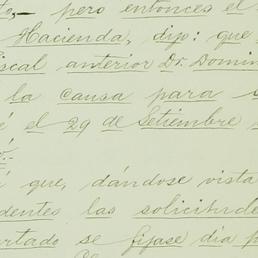 pero entonces el
Hacienda, dijo: que
iscal anterior Dr. Domin
la causa para
é el 29 de Setiembre
é que, dándose vista
dentes las solicitude
urtado se fijase día p